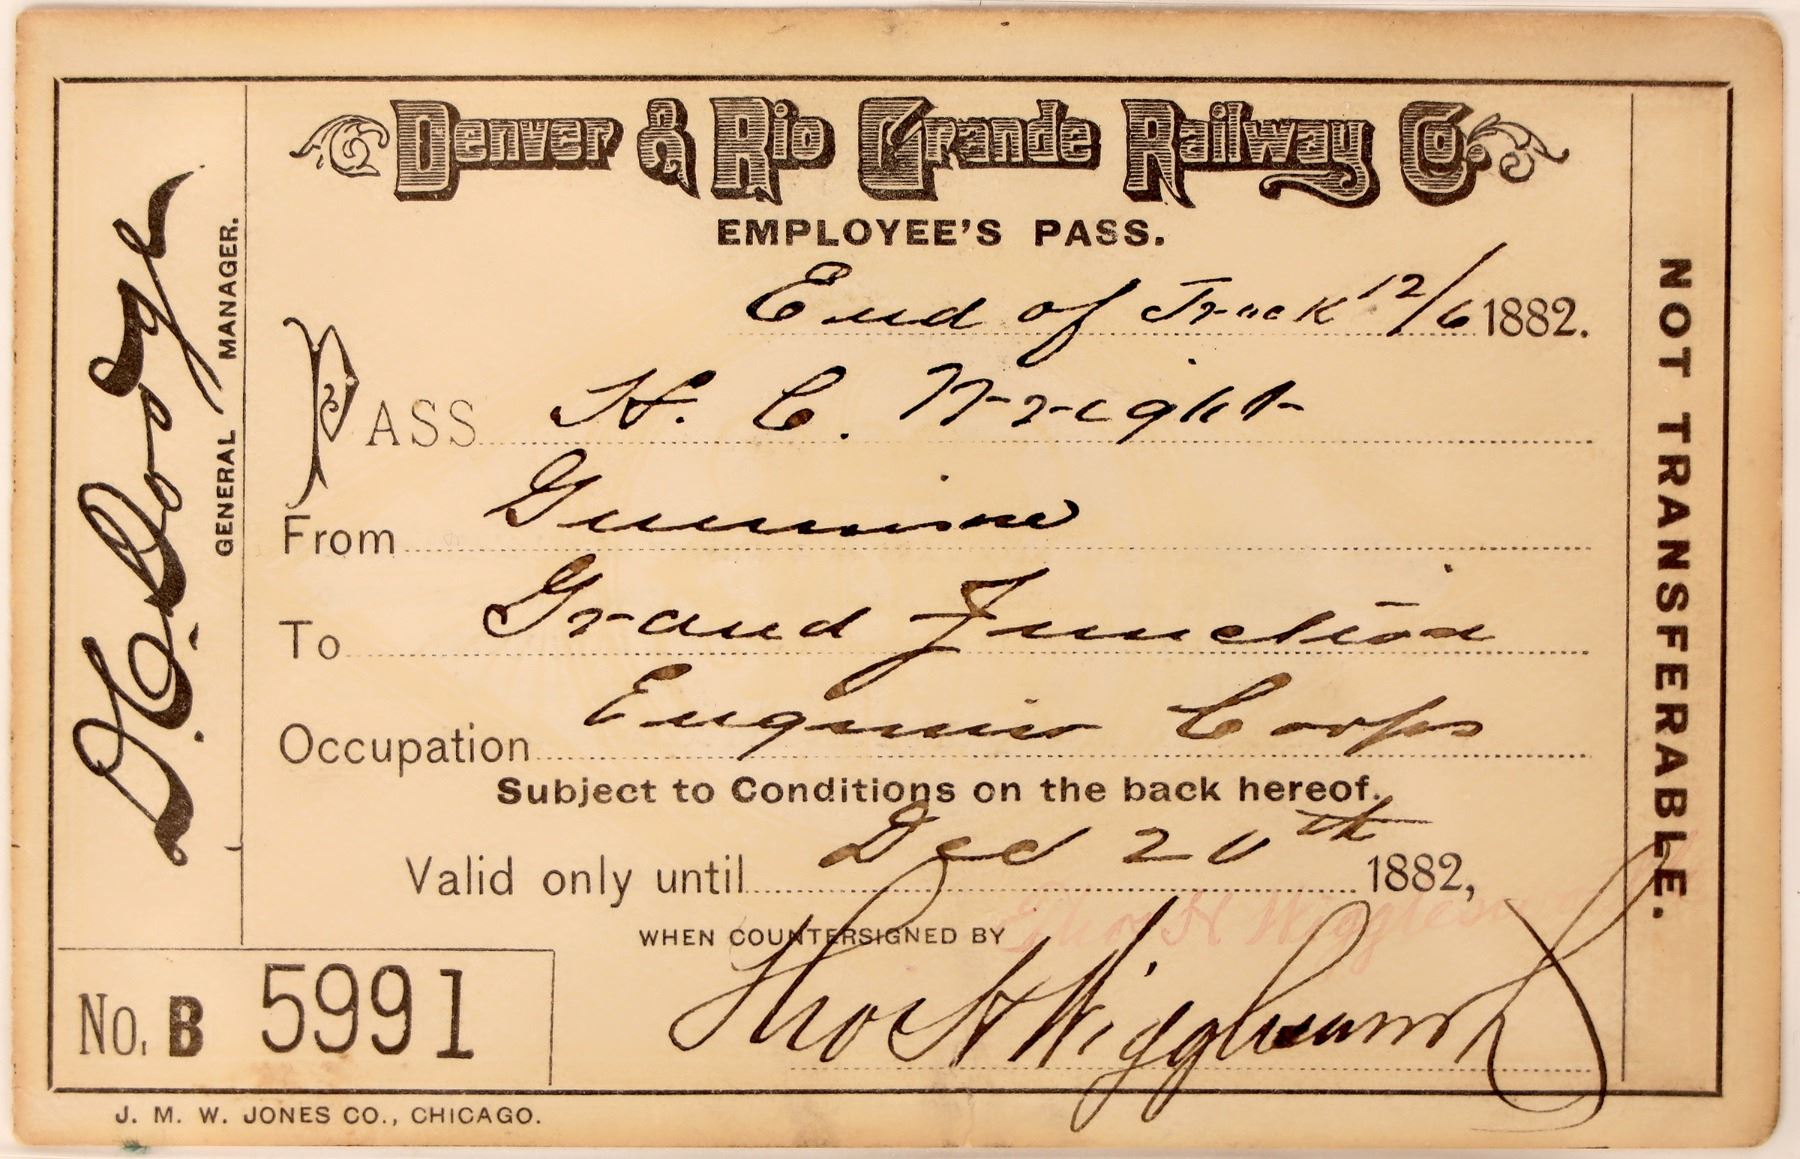 Denver & Rio Grande Railway Co.
EMPLOYEE'S PASS.
End of Track 12/6 1882.
PASS H. C. Wright
From Gunnison
To Grand Junction
Occupation Engineer Corps
Subject to Conditions on the back hereof.
Valid only until Dec 20th 1882,
WHEN COUNTERSIGNED BY Thos H Wigglesworth
Thos H Wigglesworth
D. C. Dodge
GENERAL MANAGER.
NOT TRANSFERABLE.
No. B 5991
J. M. W. JONES CO., CHICAGO.